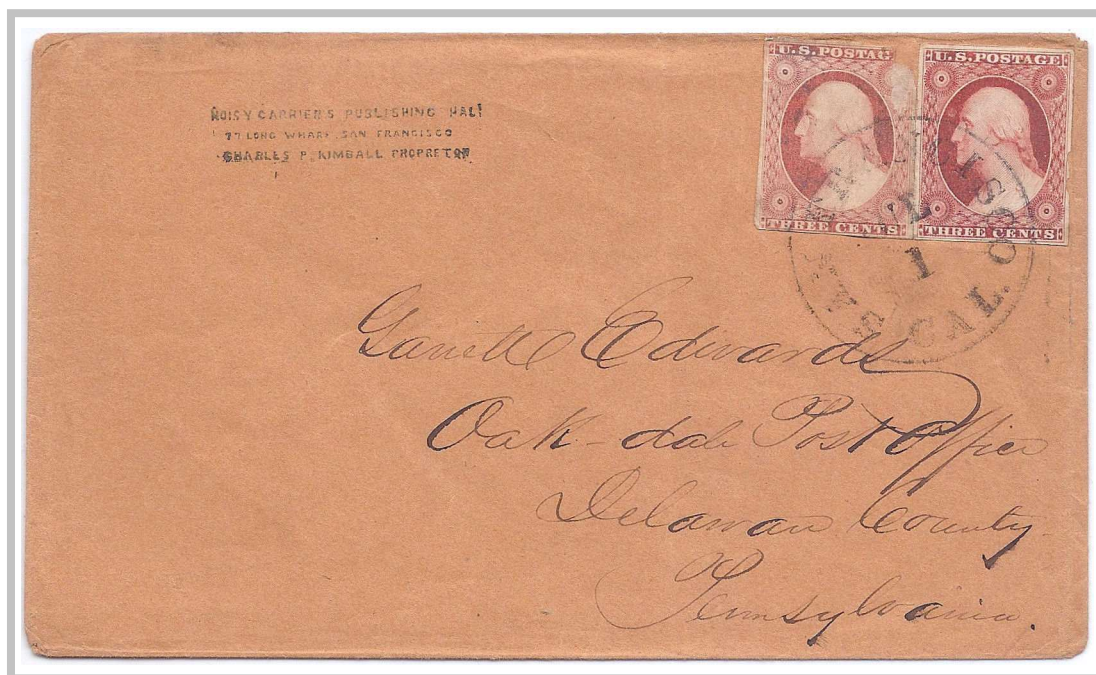 NOISY CARRIER'S PUBLISHING HALL
77 LONG WHARF, SAN FRANCISCO
CHARLES P. KIMBALL PROPRETOR
U.S. POSTAGE
THREE CENTS
U.S. POSTAGE
THREE CENTS
SAN FRANCISCO
JUL
1
CAL.
Garrett Edwards
Oak-dale Post Office
Delaware County
Pennsylvania.